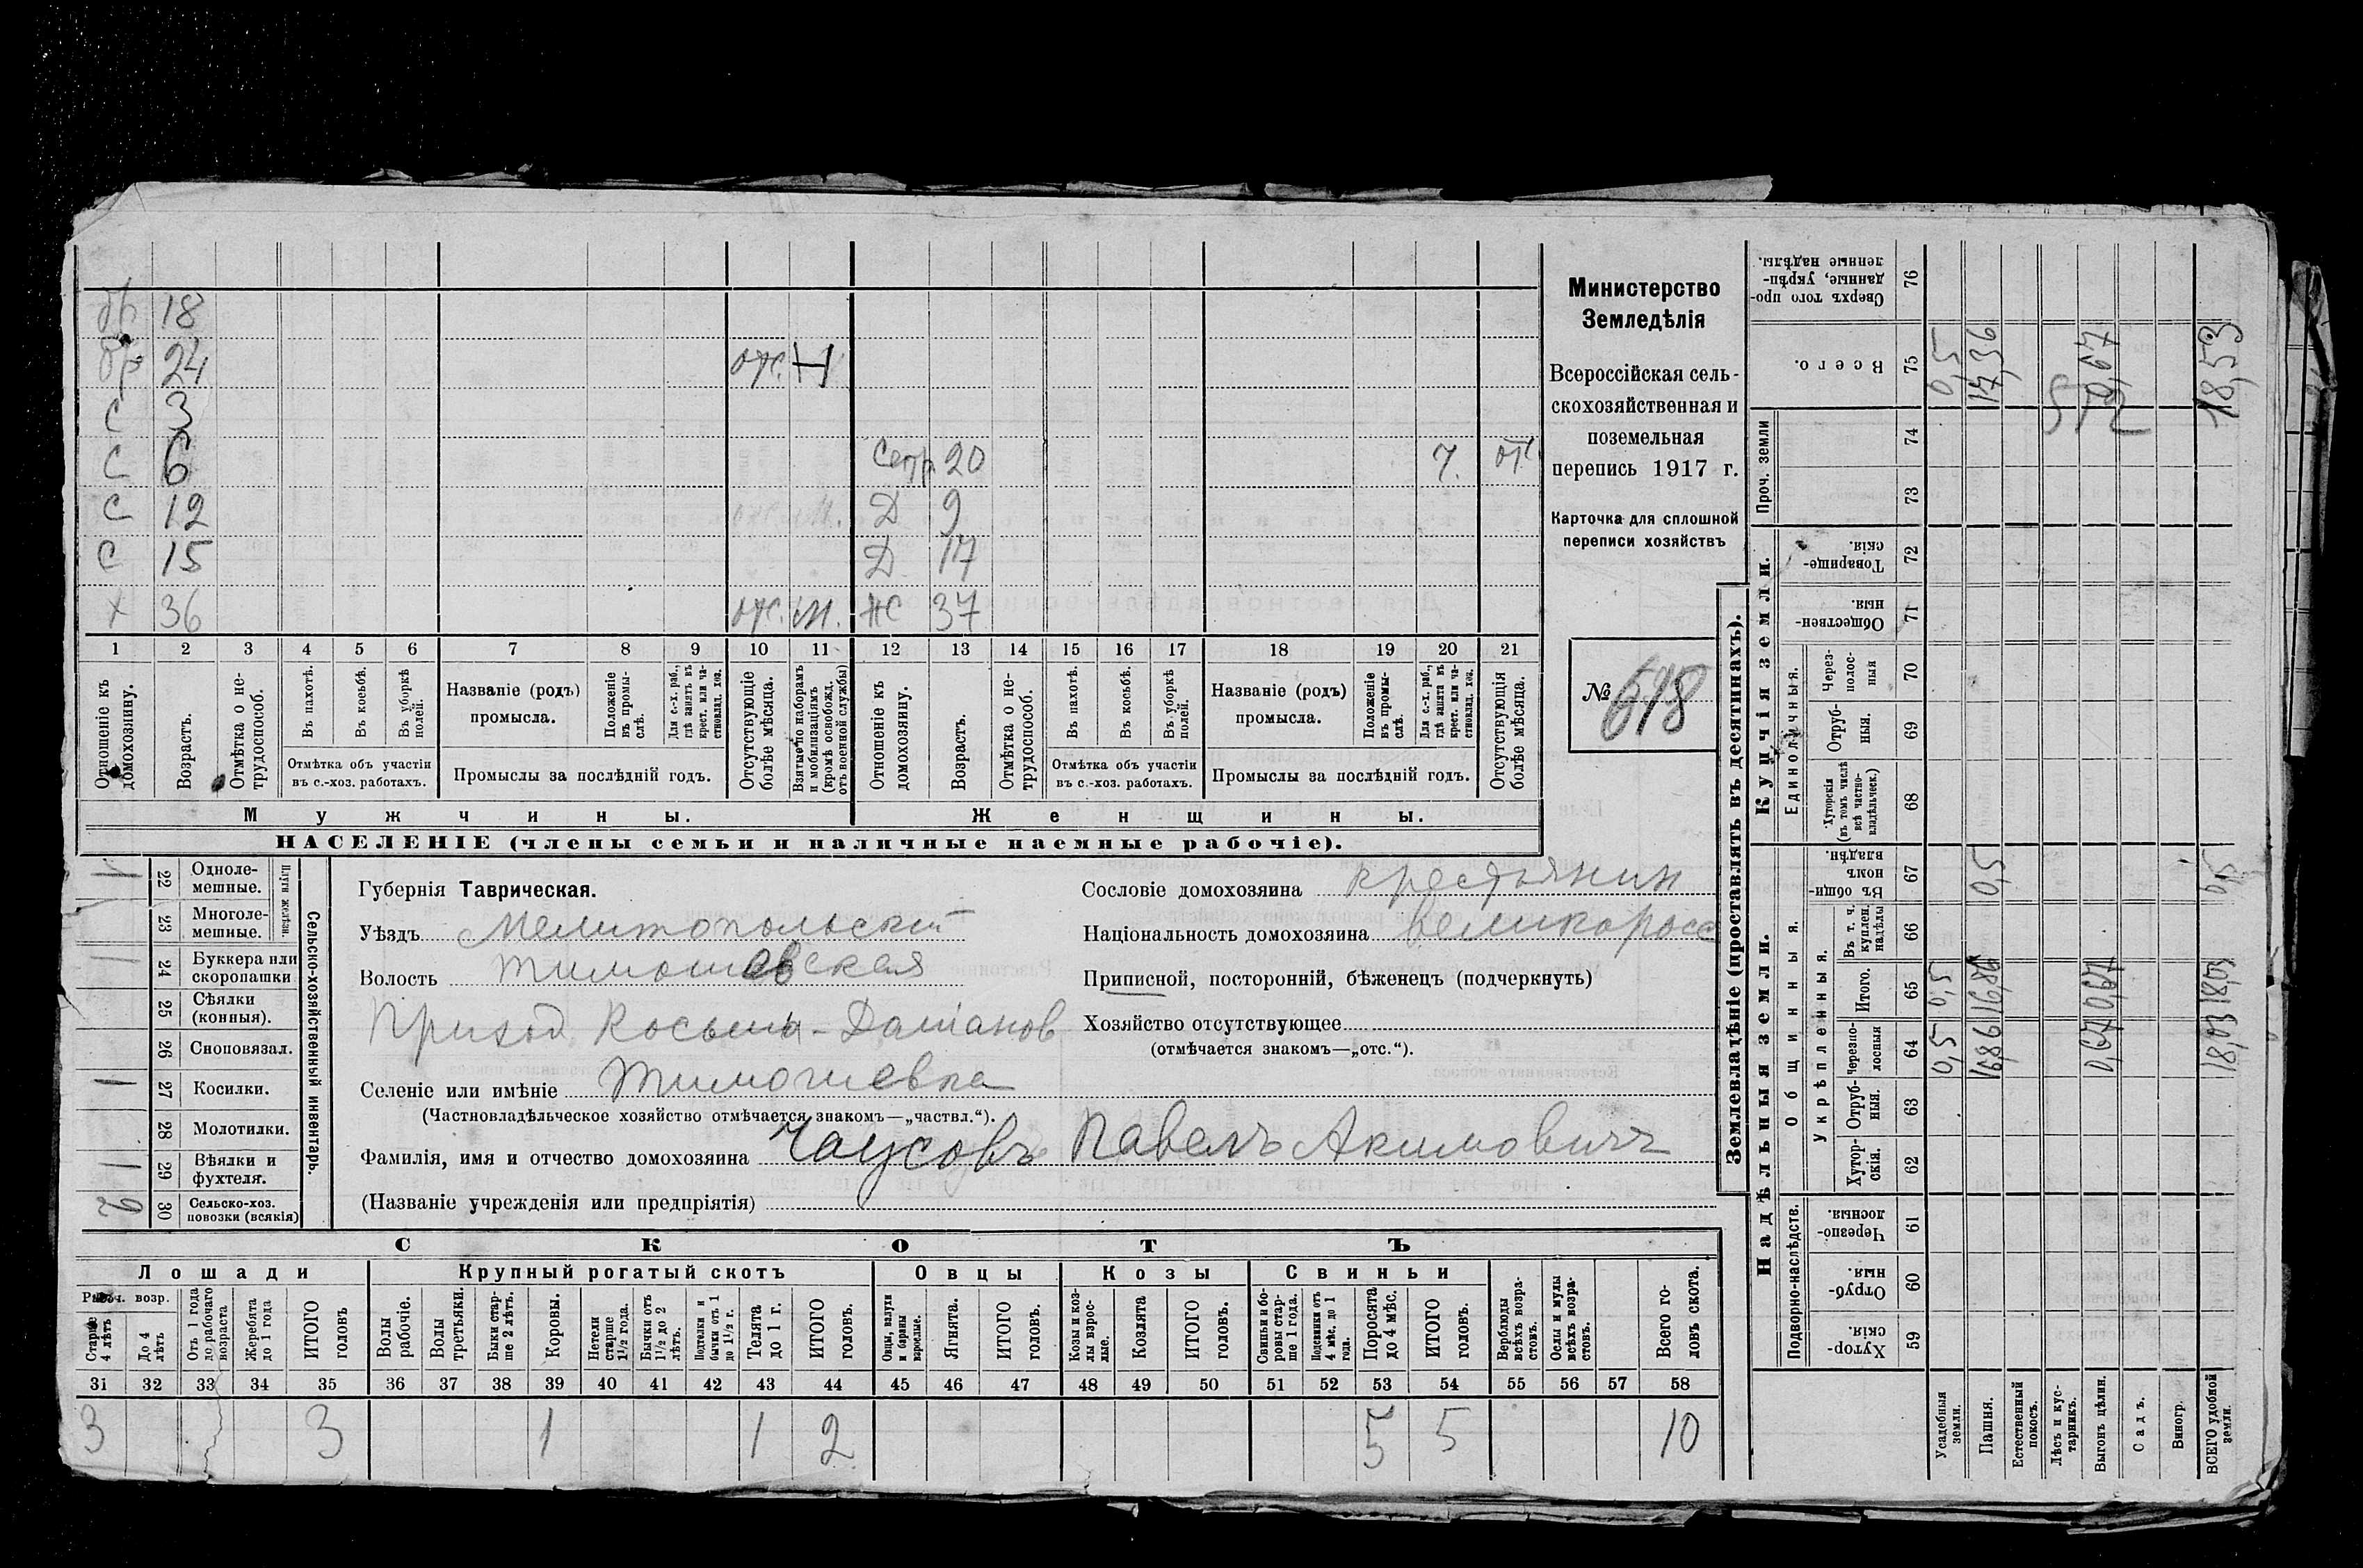 бр 18
бр 24 отс. Н
С 3
С 6 Сестр 20 7. от
С 12 Д 9
С 15 Д 17
х 36 отс. м. ж 37
1 2 3 4 5 6 7 8 9 10 11 12 13 14 15 16 17 18 19 20 21
Отношеніе къ домохозяину.
Возрастъ.
Отмѣтка о нетрудоспособ.
Въ пахотѣ.
Въ косьбѣ.
Въ уборкѣ полей.
Отмѣтка объ участіи въ с.-хоз. работахъ.
Названіе (родъ) промысла.
Положеніе въ промыслѣ.
Для с.-х. раб., гдѣ занятъ въ крест. или частновлад. хоз.
Промыслы за послѣдній годъ.
Отсутствующіе болѣе мѣсяца.
Взятые по наборамъ и мобилизаціямъ (кромѣ освобожд. отъ военной службы)
Отношеніе къ домохозяину.
Возрастъ.
Отмѣтка о нетрудоспособ.
Въ пахотѣ.
Въ косьбѣ.
Въ уборкѣ полей.
Отмѣтка объ участіи въ с.-хоз. работахъ.
Названіе (родъ) промысла.
Положеніе въ промыслѣ.
Для с.-х. раб., гдѣ занята въ крест. или частновлад. хоз.
Промыслы за послѣдній годъ.
Отсутствующія болѣе мѣсяца.
Мужчины. Женщины.
НАСЕЛЕНІЕ (члены семьи и наличные наемные рабочіе).
Министерство
Земледѣлія
Всероссійская сель-
скохозяйственная и
поземельная
перепись 1917 г.
Карточка для сплошной
переписи хозяйствъ
№ 618
Сельско-хозяйственный инвентарь.
Плуги желѣзн.
1 22 Одноле-мешные.
23 Многоле-мешные.
1 24 Буккера или скоропашки
25 Сѣялки (конныя).
26 Сноповязал.
1 27 Косилки.
28 Молотилки.
1 29 Вѣялки и фухтеля.
2 30 Сельско-хоз. повозки (всякія)
Губернія Таврическая.
Уѣздъ Мелитопольскій
Волость Тимошевская
Приход Косьма-Даміанов
Селеніе или имѣніе Тимошевка
(Частновладѣльческое хозяйство отмѣчается знакомъ—„частвл.“).
Сословіе домохозяина крестьянин
Національность домохозяина великоросс
Приписной, посторонній, бѣженецъ (подчеркнуть)
Хозяйство отсутствующее
(отмѣчается знакомъ—„отс.“).
Фамилія, имя и отчество домохозяина Чаусовъ Павелъ Акимовичъ
(Названіе учрежденія или предпріятія)
СКОТЪ
Лошади Крупный рогатый скотъ Овцы Козы Свиньи
Рабоч. возр.
Старше 4 лѣтъ
До 4 лѣтъ
Отъ 1 года до рабочаго возраста
Жеребята до 1 года
ИТОГО головъ
Волы рабочіе.
Волы третьяки.
Быки старше 2 лѣтъ.
Коровы.
Нетели старше 1½ года.
Бычки отъ 1½ до 2 лѣтъ.
Подтелки и бычки отъ 1 до 1½ г.
Телята до 1 г.
ИТОГО головъ.
Овцы, валухи и бараны взрослые.
Ягнята.
ИТОГО головъ.
Козы и козлы взрослые.
Козлята
ИТОГО головъ.
Свиньи и боровы старше 1 года.
Подсвинки отъ 4 мѣс. до 1 года.
Поросята до 4 мѣс.
ИТОГО головъ.
Верблюды всѣхъ возрастовъ.
Ослы и мулы всѣхъ возрастовъ.
Всего головъ скота.
31 32 33 34 35 36 37 38 39 40 41 42 43 44 45 46 47 48 49 50 51 52 53 54 55 56 57 58
3 3 1 1 2 5 5 10
Землевладѣніе (проставлять въ десятинахъ).
Надѣльныя земли. Купчія земли.
Подворно-наслѣдств.
Общинныя.
Укрѣпленныя.
Единоличныя.
Проч. земли
Хуторскія 59
Отрубныя. 60
Черезполосныя 61
Хуторскія. 62
Отрубныя. 63
Черезполосныя 64
Итого. 65
Въ т. ч. куплен. надѣлы 66
Въ общиномъ владѣн. 67
Хуторскія (въ томъ числѣ всѣ частновладѣльческ.) 68
Отрубныя. 69
Черезполосныя 70
Общественныя. 71
Товарищескія. 72
73
74
Всего. 75
Сверхъ того проданные, укрѣпленные надѣлы. 76
Усадебныя земли. 0,5 0,5 0,5
Пашня. 16,86 16,86 0,5 17,36
Естественный покосъ.
Лѣсъ и кустарникъ.
Выгонъ цѣлин. 0,67 0,67 0,67
Садъ.
Виногр.
ВСЕГО удобной земли. 18,03 18,03 0,5 18,53
572